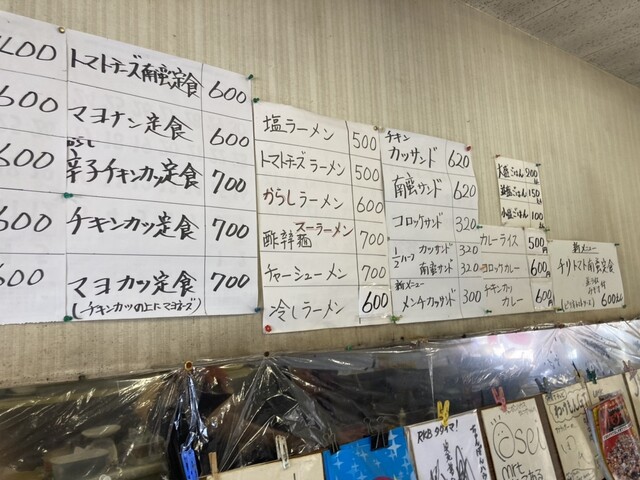 600
600
600
600
トマトチーズ南蛮定食 600
マヨナン定食 600
からし
辛子チキンカツ定食 700
チキンカツ定食 700
マヨカツ定食 700
(チキンカツの上にマヨネーズ)
塩ラーメン 500
トマトチーズラーメン 500
からしラーメン 600
酢辛麺 スーラーメン 700
チャーシューメン 700
冷しラーメン 600
チキン
カッサンド 620
南蛮サンド 620
コロッケサンド 320
1/2ハーフ カツサンド 320
南蛮サンド 320
新メニュー
メンチカツサンド 300
大盛ごはん 200
ごはん 150
小盛ごはん 100
カレーライス 500円
コロッケカレー 600円
チキンカツ
カレー 600円
新メニュー
チリトマト南蛮定食
600
RKB タダイマ!